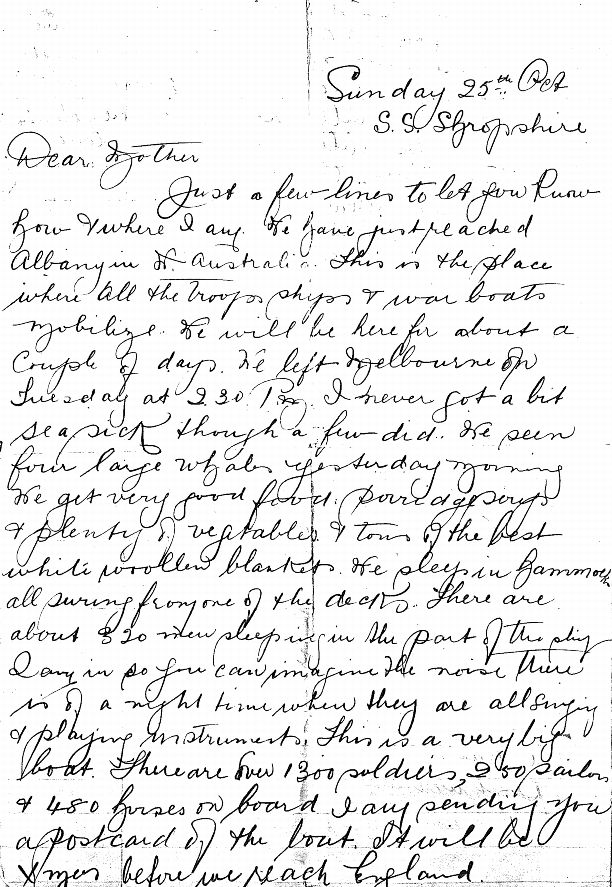 Sunday 25th Oct
S.S. Shropshire
Dear Mother
Just a few lines to let you know
how & where I am. We have just reached
Albany in W. Australia. This is the place
where all the troops ships & war boats
mobilize. We will be here for about a
couple of days. We left Melbourne on
Tuesday at 2.30 Pm. I never got a bit
sea sick though a few did. We seen
four large whales yesterday morning
We get very good food. porridge soup
& plenty of vegatables & tons of the best
white woollen blankets. We sleep in hammocks
all swung from one of the decks. There are
about 320 men sleeping in the part of the ship
I am in so you can imagine the noise there
is of a night time when they are all singing
& playing instruments. This is a very big
boat. There are over 1300 soldiers, 250 sailors
& 480 horses on board I am sending you
a postcard of the boat. It will be
Xmas before we reach England.